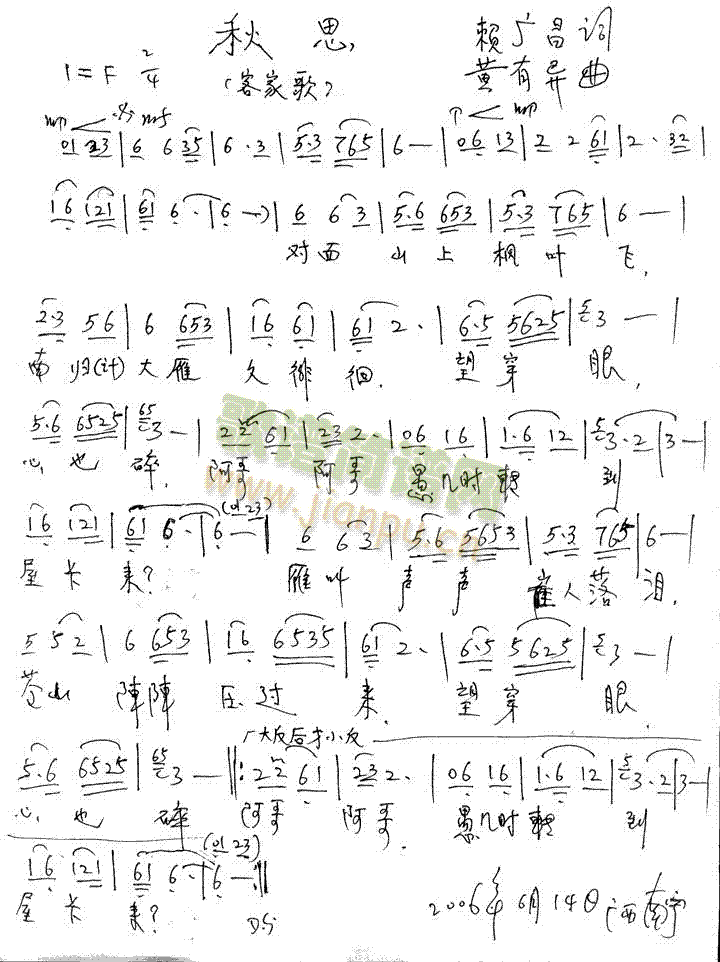 秋思
赖广昌词
1=F 2/4
(客家歌)
黄有异曲
mp mf p mp
01 23 | 6 6 35 | 6 · 3 | 5·3 765 | 6 — | 06 13 | 2 2 61 | 2 · 32 |
16 121 | 61 6 · | 6 —) | 6 6 3 | 5·6 653 | 5·3 765 | 6 — |
对面 山上 枫叶 飞,
2·3 56 | 6 653 | 16 61 | 61 2 · | 6·5 5625 | 5 3 — |
南归(的)大雁 久徘徊. 望穿 眼,
5·6 6525 | 65 3 — | 22 61 | 23 2 · | 06 16 | 1·6 12 | 5 3·2 | 3 — |
心也 碎, 阿哥 阿哥 几时 转 到
(01 23)
16 121 | 61 6 · | 6 — | 6 6 3 | 5·6 5653 | 5·3 765 | 6 — |
屋卡 来? 雁叫 声声 崔人落 泪,
5 5 2 | 6 653 | 16 6535 | 61 2 · | 6·5 5625 | 5 3 — |
苍山 陣陣 压过 来. 望穿 眼,
「大反后才小反
5·6 6525 | 65 3 — ‖: 22 61 | 23 2 · | 06 16 | 1·6 12 | 5 3·2 | 3 — |
心也 碎 阿哥 阿哥. 几时 转 到
(01 23)
16 121 | 61 6 · | 6 — :‖
屋卡 来? D.S
2006年6月14日广西南宁
歌谱简谱网
www.jianpu.cn